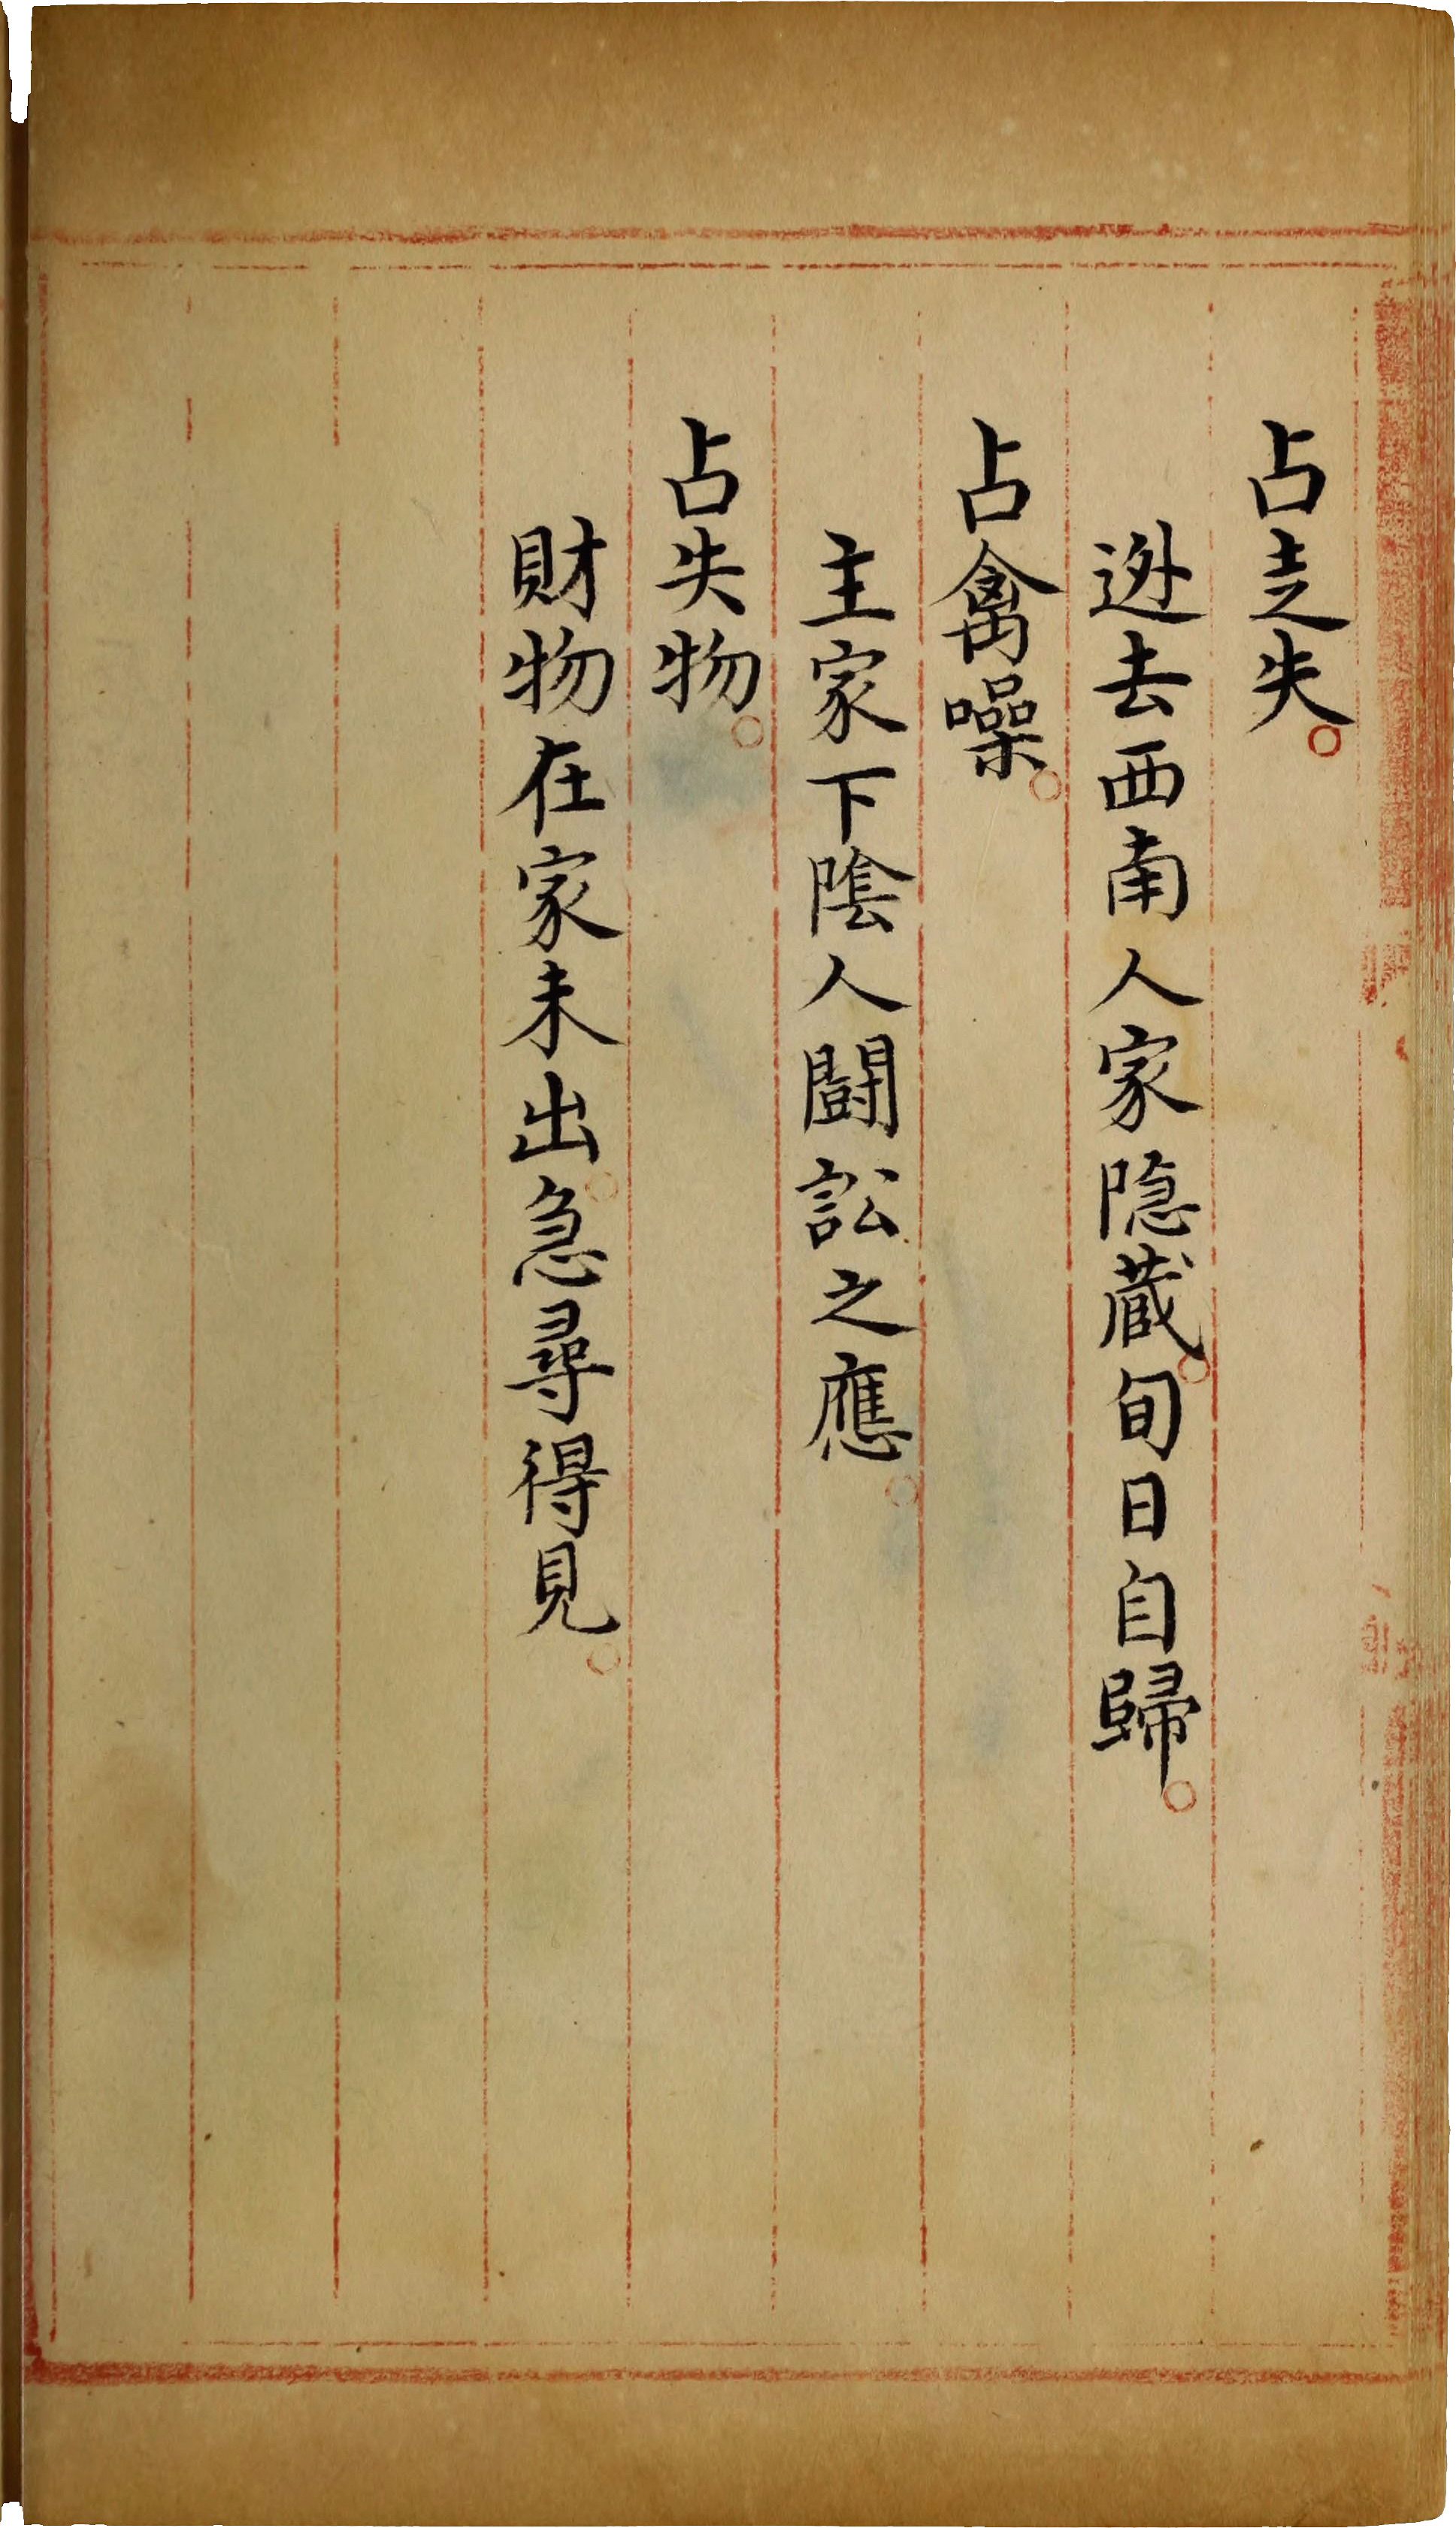 占走失。
迯去西南人家隐蔵。旬日自歸。
占禽噪。
主家下陰人鬪訟之應。
占失物。
財物在家未出。急尋得見。